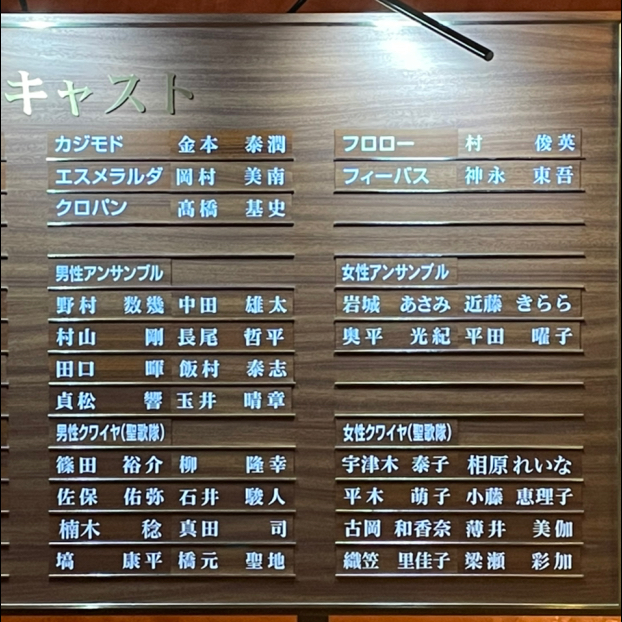 キャスト
カジモド 金本 泰潤
エスメラルダ 岡村 美南
クロパン 髙橋 基史
フロロー 村 俊英
フィーバス 神永 東吾
男性アンサンブル
野村 数幾 中田 雄太
村山 剛 長尾 哲平
田口 暉 飯村 泰志
貞松 響 玉井 晴章
女性アンサンブル
岩城 あさみ 近藤 きらら
奥平 光紀 平田 曜子
男性クワイヤ(聖歌隊)
篠田 裕介 柳 隆幸
佐保 佑弥 石井 駿人
楠木 稔 真田 司
塙 康平 橋元 聖地
女性クワイヤ(聖歌隊)
宇津木 泰子 相原 れいな
平木 萌子 小藤 恵理子
古岡 和香奈 薄井 美伽
織笠 里佳子 梁瀬 彩加